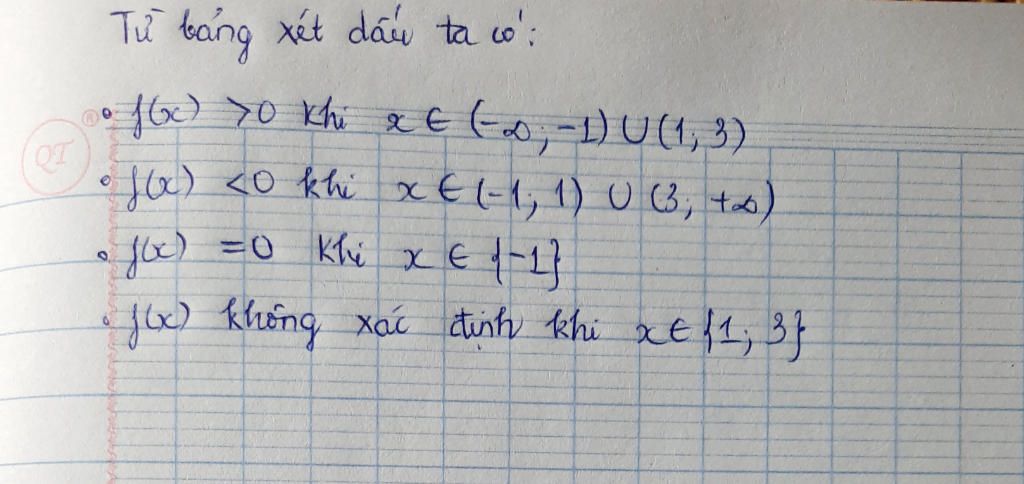 Từ bảng xét dấu ta có:
• f(x) >0 khi x ∈ (-∞; -1) ∪ (1; 3)
QT ®
• f(x) <0 khi x ∈ (-1; 1) ∪ (3; +∞)
• f(x) =0 khi x ∈ {-1}
• f(x) không xác định khi x ∈ {1; 3}